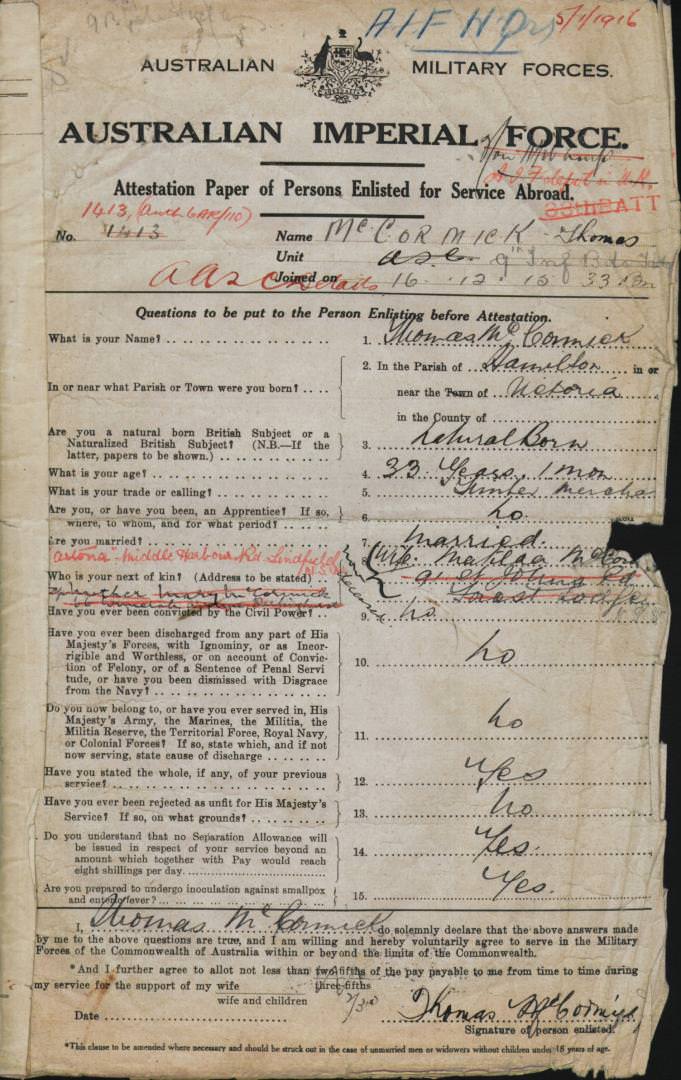 AIF HQrs 5/1/1916
AUSTRALIAN MILITARY FORCES.
AUSTRALIAN IMPERIAL FORCE.
Attestation Paper of Persons Enlisted for Service Abroad.
1413, (Auth 6AR/110)
No. 1413 Name McCORMICK Thomas
Unit A S C 9th Inf Bde
AASC Details Joined on 16 . 12 . 15
Questions to be put to the Person Enlisting before Attestation.
What is your Name? 1. Thomas McCormick
2. In the Parish of Hamilton in or
In or near what Parish or Town were you born? near the Town of Victoria
in the County of
Are you a natural born British Subject or a
Naturalized British Subject? (N.B.—If the 3. Natural Born
latter, papers to be shown.)
What is your age? 4. 33 Years 1 mon
What is your trade or calling? 5. Timber Mercha
Are you, or have you been, an Apprentice? If so, 6. No
where, to whom, and for what period?
Are you married? 7. Married.
"artona" Middle Harbour Rd Lindfield N.S.W. Wife Matilda McCor
Who is your next of kin? (Address to be stated) 91 St Johns Rd
Mother Mary McCormick Forest Lodge
Have you ever been convicted by the Civil Power? 9. No
Have you ever been discharged from any part of His
Majesty's Forces, with Ignominy, or as Incor-
rigible and Worthless, or on account of Convic- 10. No
tion of Felony, or of a Sentence of Penal Servi
tude, or have you been dismissed with Disgrace
from the Navy?
Do you now belong to, or have you ever served in, His
Majesty's Army, the Marines, the Militia, the
Militia Reserve, the Territorial Force, Royal Navy, 11. No
or Colonial Forces? If so, state which, and if not
now serving, state cause of discharge
Have you stated the whole, if any, of your previous
service? 12. Yes
Have you ever been rejected as unfit for His Majesty's
Service? If so, on what grounds? 13. No
Do you understand that no Separation Allowance will
be issued in respect of your service beyond an
amount which together with Pay would reach 14. Yes.
eight shillings per day.
Are you prepared to undergo inoculation against smallpox
and enteric fever? 15. Yes.
I, Thomas McCormick do solemnly declare that the above answers made
by me to the above questions are true, and I am willing and hereby voluntarily agree to serve in the Military
Forces of the Commonwealth of Australia within or beyond the limits of the Commonwealth.
*And I further agree to allot not less than two-fifths of the pay payable to me from time to time during
my service for the support of my wife three-fifths
wife and children
Date Thomas McCormick
Signature of person enlisted.
*This clause to be amended where necessary and should be struck out in the case of unmarried men or widowers without children under 18 years of age.